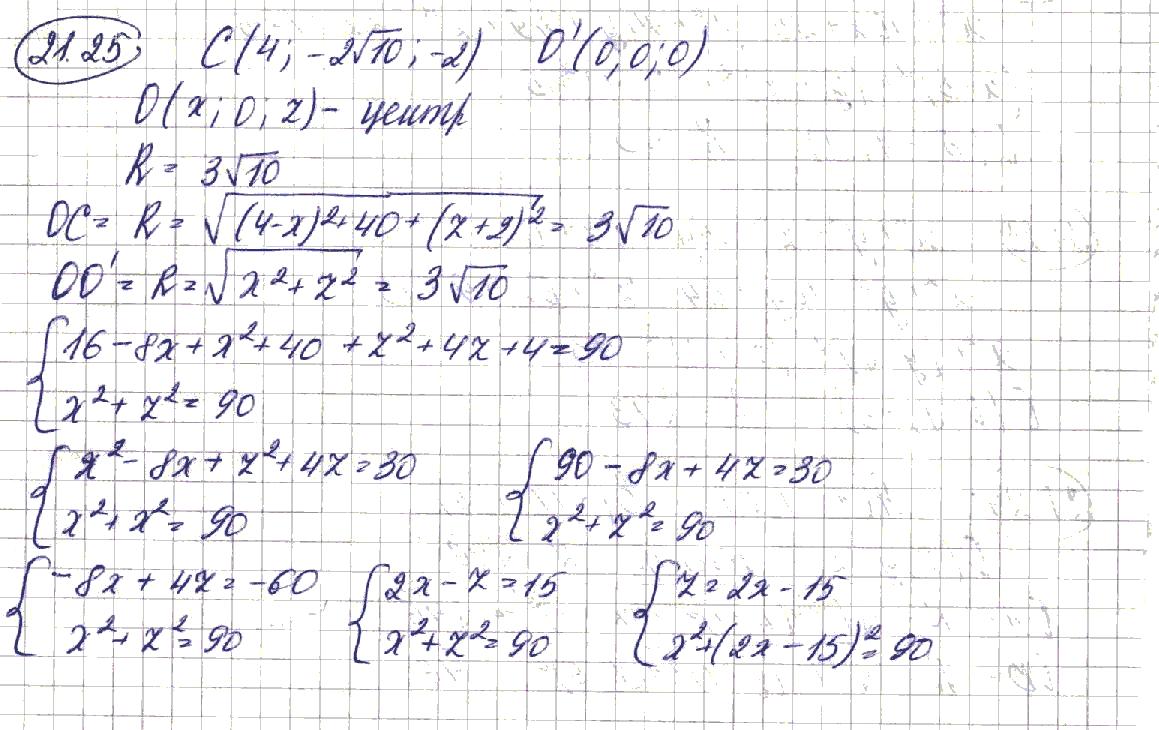 21.25 C(4; -2√10; -2) O'(0; 0; 0)
O(x; 0; z) - центр
R = 3√10
OC = R = √((4-x)²+40+(z+2)²) = 3√10
OO' = R = √(x²+z²) = 3√10
{16-8x+x²+40+z²+4z+4=90
x²+z²=90
{x²-8x+z²+4z=30 {90-8x+4z=30
x²+x²=90 x²+z²=90
{-8x+4z=-60 {2x-z=15 {z=2x-15
x²+z²=90 x²+z²=90 x²+(2x-15)²=90